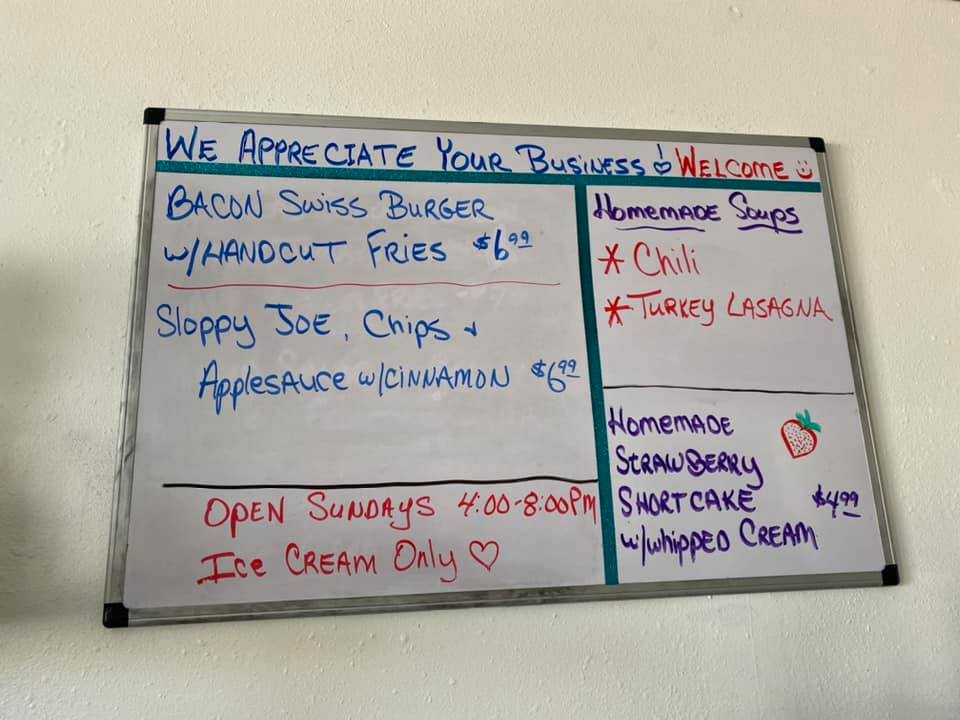 WE APPRECIATE YOUR BUSINESS WELCOME
BACON SWISS BURGER
W/HANDCUT FRIES $6.99
SLOPPY JOE, CHIPS +
APPLESAUCE W/CINNAMON $6.99
OPEN SUNDAYS 4:00-8:00PM
ICE CREAM ONLY ♡
HOMEMADE SOUPS
* Chili
* TURKEY LASAGNA
HOMEMADE
STRAWBERRY
SHORTCAKE $4.99
W/WHIPPED CREAM